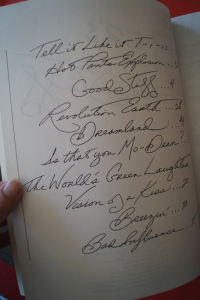 Tell it Like it T-I-IS
Hot Pants Explosion
Good Stuff
Revolution Earth
Dreamland
Is that you Mo-Dean?
The World's Green Laughter
Vision of a Kiss
Breezin'
Bad Influence